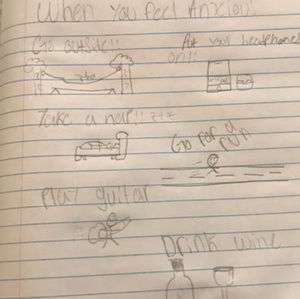 When You feel Anxious
Go outside!!
Put your headphones
on!!
Take a nap!! zzz
Go For a
run
Play guitar
Drink wine